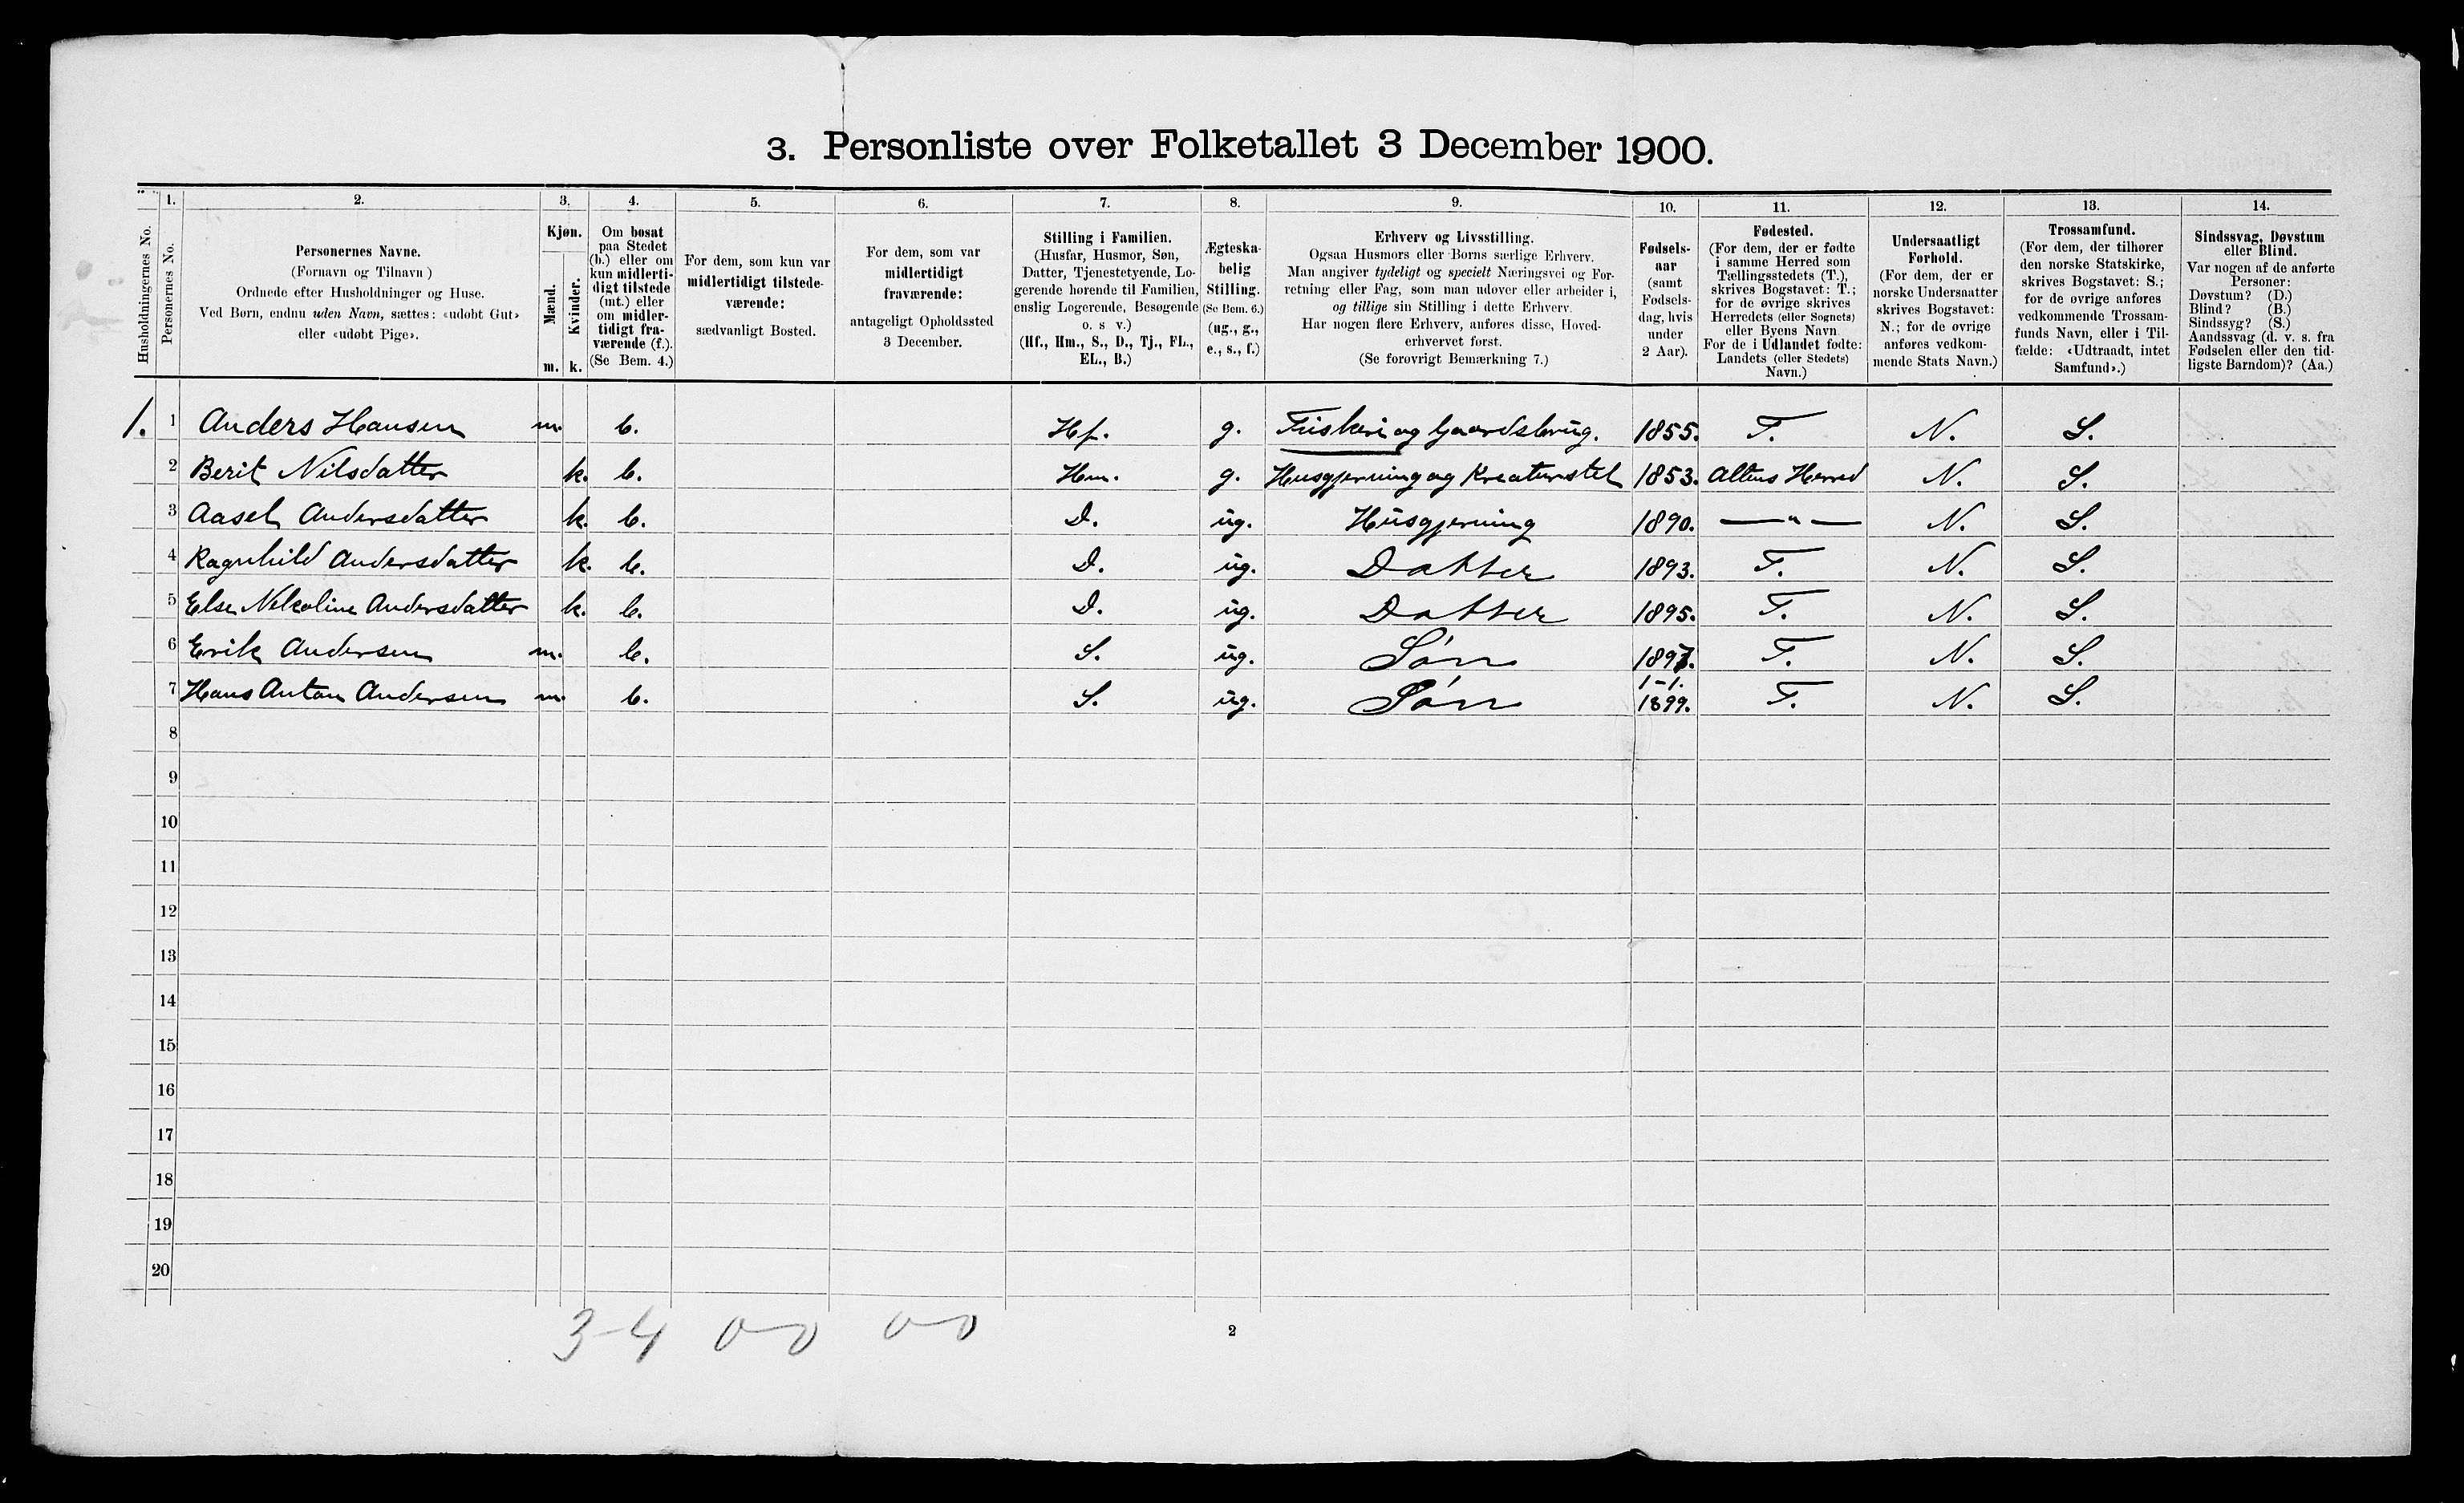 3. Personliste over Folketallet 3 December 1900.
1. 2. 3. 4. 5. 6. 7. 8. 9. 10. 11. 12. 13. 14.
Husholdningernes No.
Personernes No.
Personernes Navne.
(Fornavn og Tilnavn)
Ordnede efter Husholdninger og Huse.
Ved Børn, endnu uden Navn, sættes: «udøbt Gut»
eller «udøbt Pige».
Kjøn.
Mænd.
Kvinder.
m. k.
Om bosat
paa Stedet
(b.) eller om
kun midlerti-
digt tilstede
(mt.) eller
om midler-
tidigt fra-
værende (f.).
(Se Bem. 4.)
For dem, som kun var
midlertidigt tilstede-
værende:
sædvanligt Bosted.
For dem, som var
midlertidigt
fraværende:
antageligt Opholdssted
3 December.
Stilling i Familien.
(Husfar, Husmor, Søn,
Datter, Tjenestetyende, Lo-
gerende hørende til Familien,
enslig Logerende, Besøgende
o. s v.)
(Hf., Hm., S., D., Tj., FL.,
EL., B.)
Ægteska-
belig
Stilling.
(Se Bem. 6.)
(ug., g.,
e., s., f.)
Erhverv og Livsstilling.
Ogsaa Husmors eller Børns særlige Erhverv.
Man angiver tydeligt og specielt Næringsvei og For-
retning eller Fag, som man udøver eller arbeider i,
og tillige sin Stilling i dette Erhverv.
Har nogen flere Erhverv, anføres disse, Hoved-
erhvervet først.
(Se forøvrigt Bemærkning 7.)
Fødsels-
aar
(samt
Fødsels-
dag, hvis
under
2 Aar).
Fødested.
(For dem, der er fødte
i samme Herred som
Tællingsstedets (T.),
skrives Bogstavet: T.;
for de øvrige skrives
Herredets (eller Sognets)
eller Byens Navn
For de i Udlandet fødte:
Landets (eller Stedets)
Navn.)
Undersaatligt
Forhold.
(For dem, der er
norske Undersaatter
skrives Bogstavet:
N.; for de øvrige
anføres vedkom-
mende Stats Navn.)
Trossamfund.
(For dem, der tilhører
den norske Statskirke,
skrives Bogstavet: S.;
for de øvrige anføres
vedkommende Trossam-
funds Navn, eller i Til-
fælde: «Udtraadt, intet
Samfund».)
Sindssvag, Døvstum
eller Blind.
Var nogen af de anførte
Personer:
Døvstum? (D.)
Blind? (B.)
Sindssyg? (S.)
Aandssvag (d. v. s. fra
Fødselen eller den tid-
ligste Barndom)? (Aa.)
1. 1 Anders Hansen m. b. Hf. g. Fiskeri og Gaardsbrug. 1855. T. N. S.
2 Berit Nilsdatter k. b. Hm. g. Husgjerning og Kreaturstel 1853. Altens Herred N. S.
3 Aasel Andersdatter k. b. D. ug. Husgjerning 1890. —"— N. S.
4 Ragnhild Andersdatter k. b. D. ug. Datter 1893. T. N. S.
5 Else Nikoline Andersdatter k. b. D. ug. Datter 1895. T. N. S.
6 Erik Andersen m. b. S. ug. Søn 1897. T. N. S.
7 Hans Anton Andersen m. b. S. ug. Søn 1-1. 1899. T. N. S.
8
9
10
11
12
13
14
15
16
17
18
19
20
3-4 0-0 0-0
2